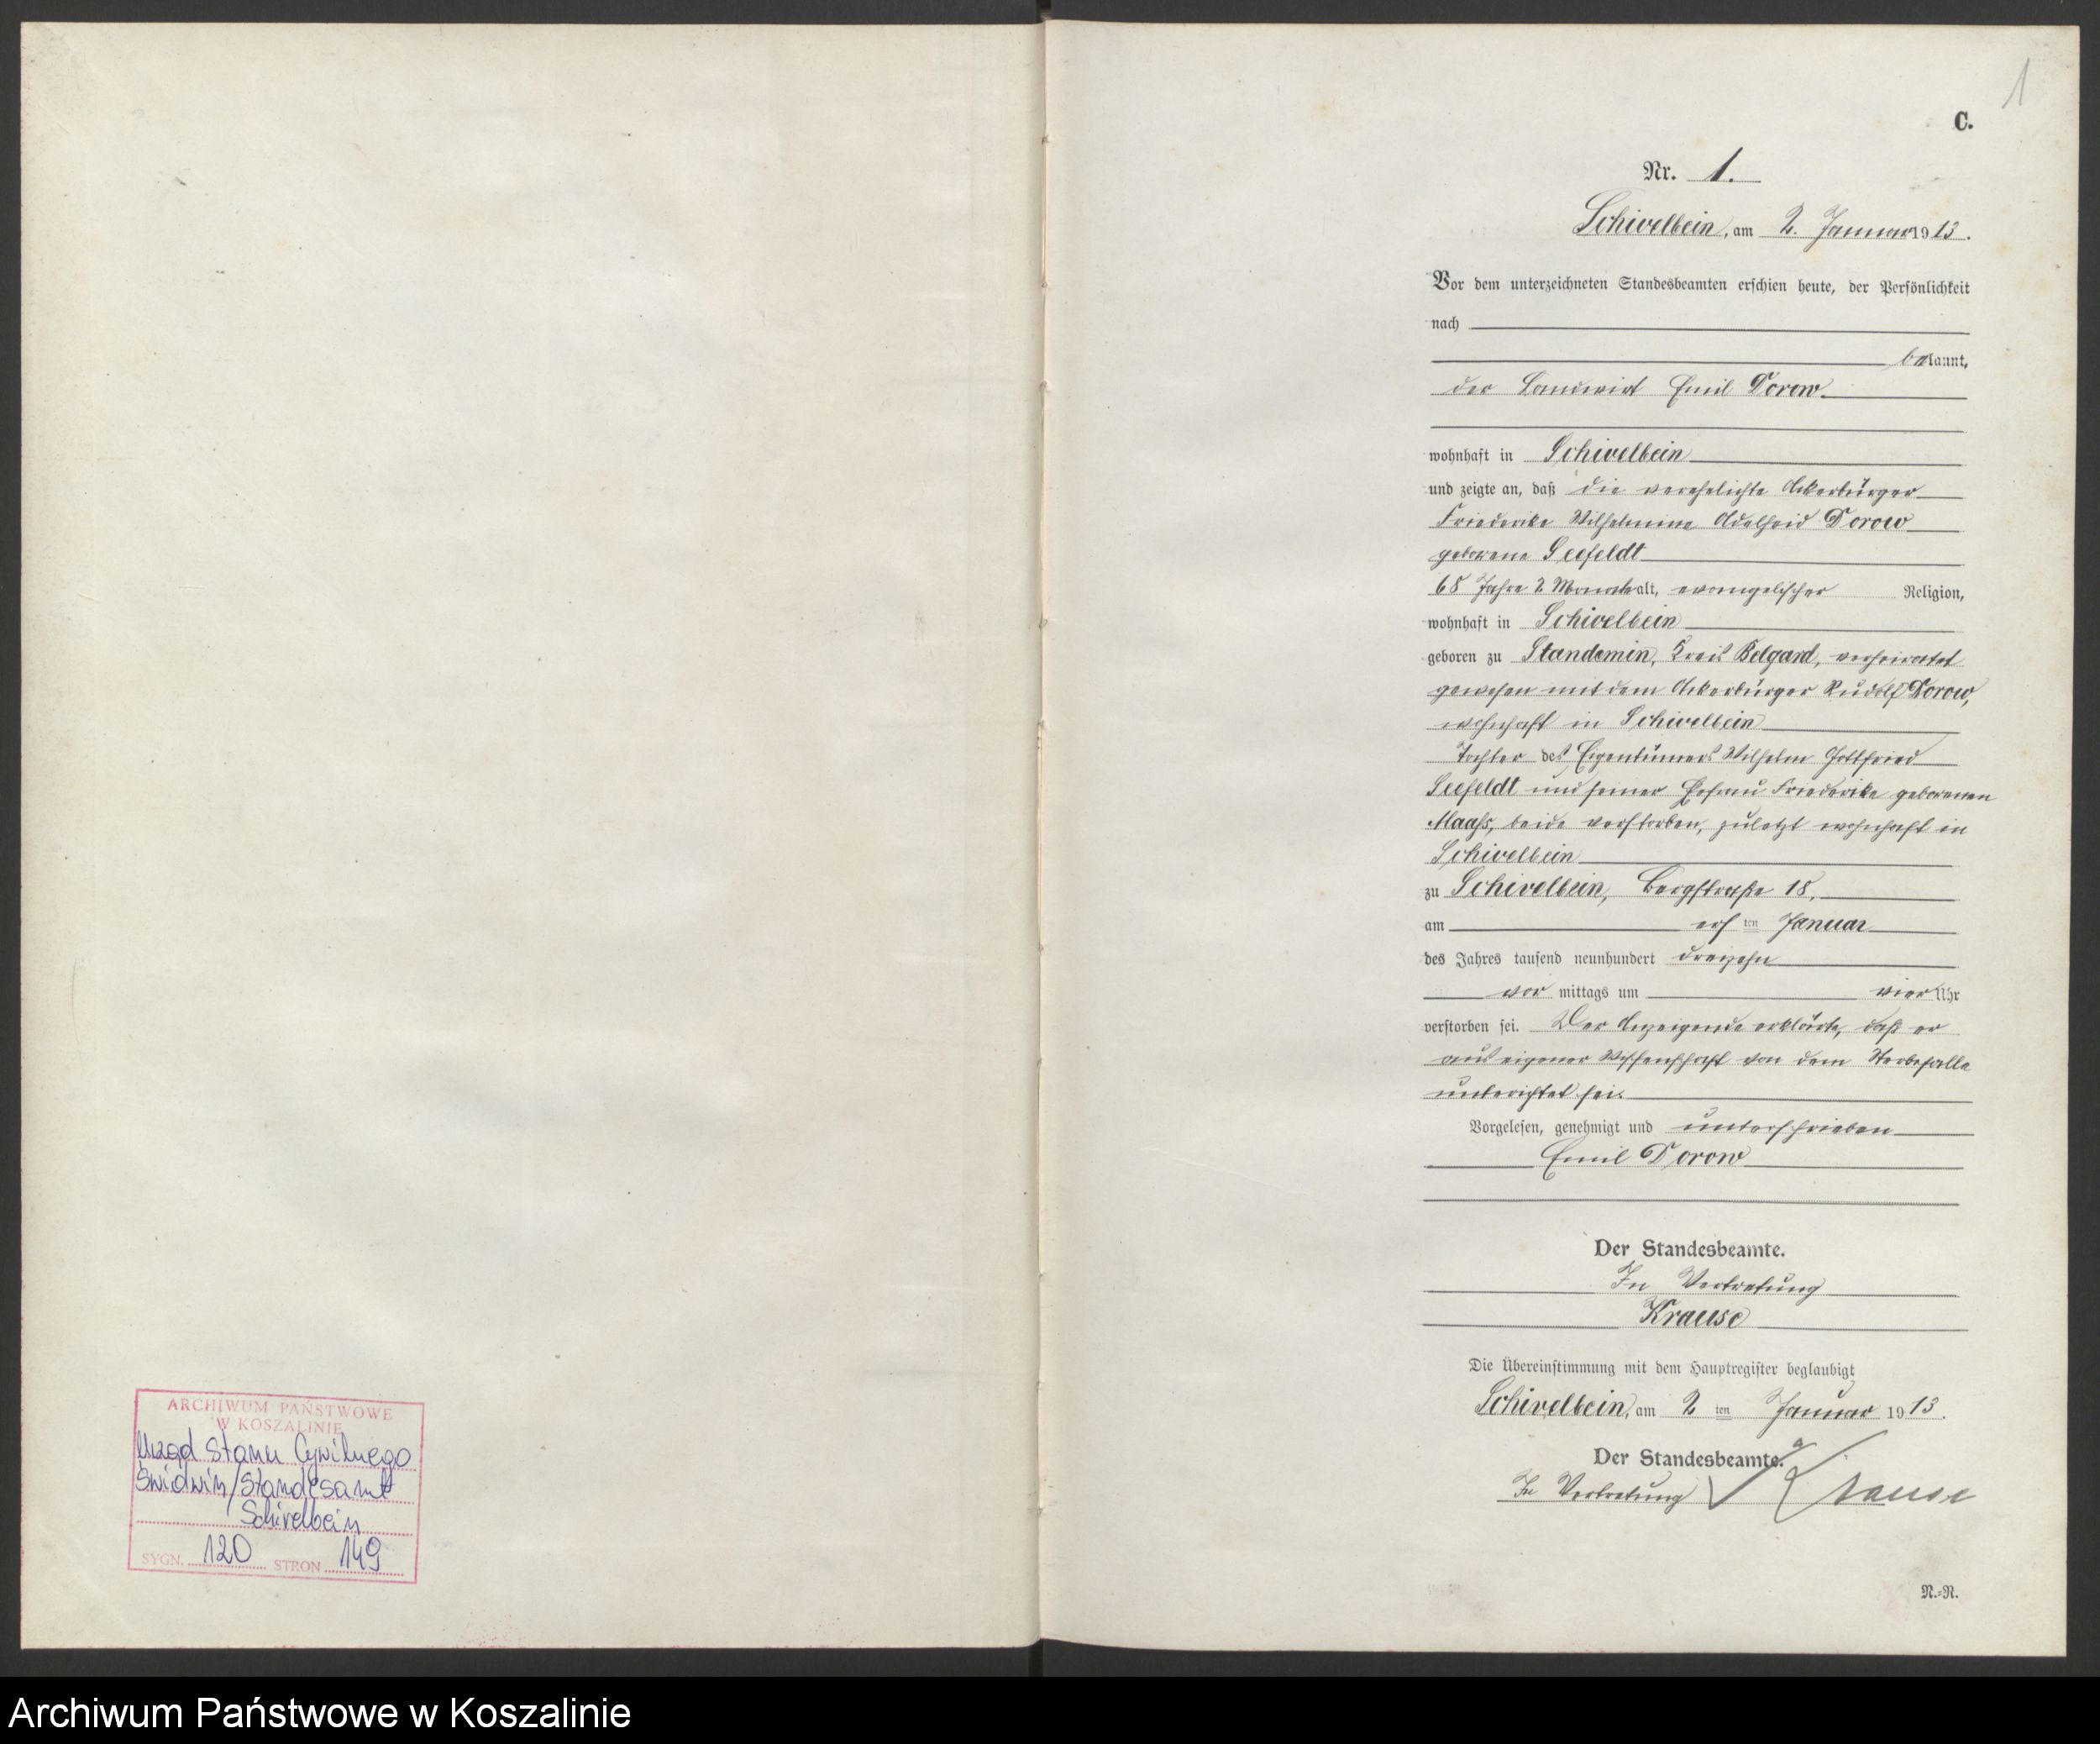 ARCHIWUM PAŃSTWOWE
W KOSZALINIE
Urząd Stanu Cywilnego
Świdwin/Standesamt
Schivelbein
SYGN. 120 STRON 149
1
C.
Nr. 1.
Schivelbein, am 2. Januar 1913.
Vor dem unterzeichneten Standesbeamten erschien heute, der Persönlichkeit
nach
bekannt,
der Landwirt Emil Dorow.
wohnhaft in Schivelbein
und zeigte an, daß die verehelichte Ackerbürger
Friederike Wilhelmine Adelheid Dorow
geborene Seefeldt
68 Jahre 2 Monate alt, evangelischer Religion,
wohnhaft in Schivelbein
geboren zu Standemin, Kreis Belgard, verheiratet
gewesen mit dem Ackerbürger Rudolf Dorow,
wohnhaft in Schivelbein
Tochter des Eigentümers Wilhelm Gottfried
Seefeldt und seiner Ehefrau Friederike geborenen
Maaß, beide verstorben, zuletzt wohnhaft in
Schivelbein
zu Schivelbein, Bergstraße 18,
am ersten Januar
des Jahres tausend neunhundert dreizehn
vor mittags um vier Uhr
verstorben sei. Der Anzeigende erklärte, daß er
aus eigener Wissenschaft von dem Sterbefalle
unterichtet sei.
Vorgelesen, genehmigt und unterschrieben
Emil Dorow
Der Standesbeamte.
In Vertretung
Krause
Die Übereinstimmung mit dem Hauptregister beglaubigt
Schivelbein, am 2 ten Januar 1913.
Der Standesbeamte.
In Vertretung Krause
N.=N.
Archiwum Państwowe w Koszalinie